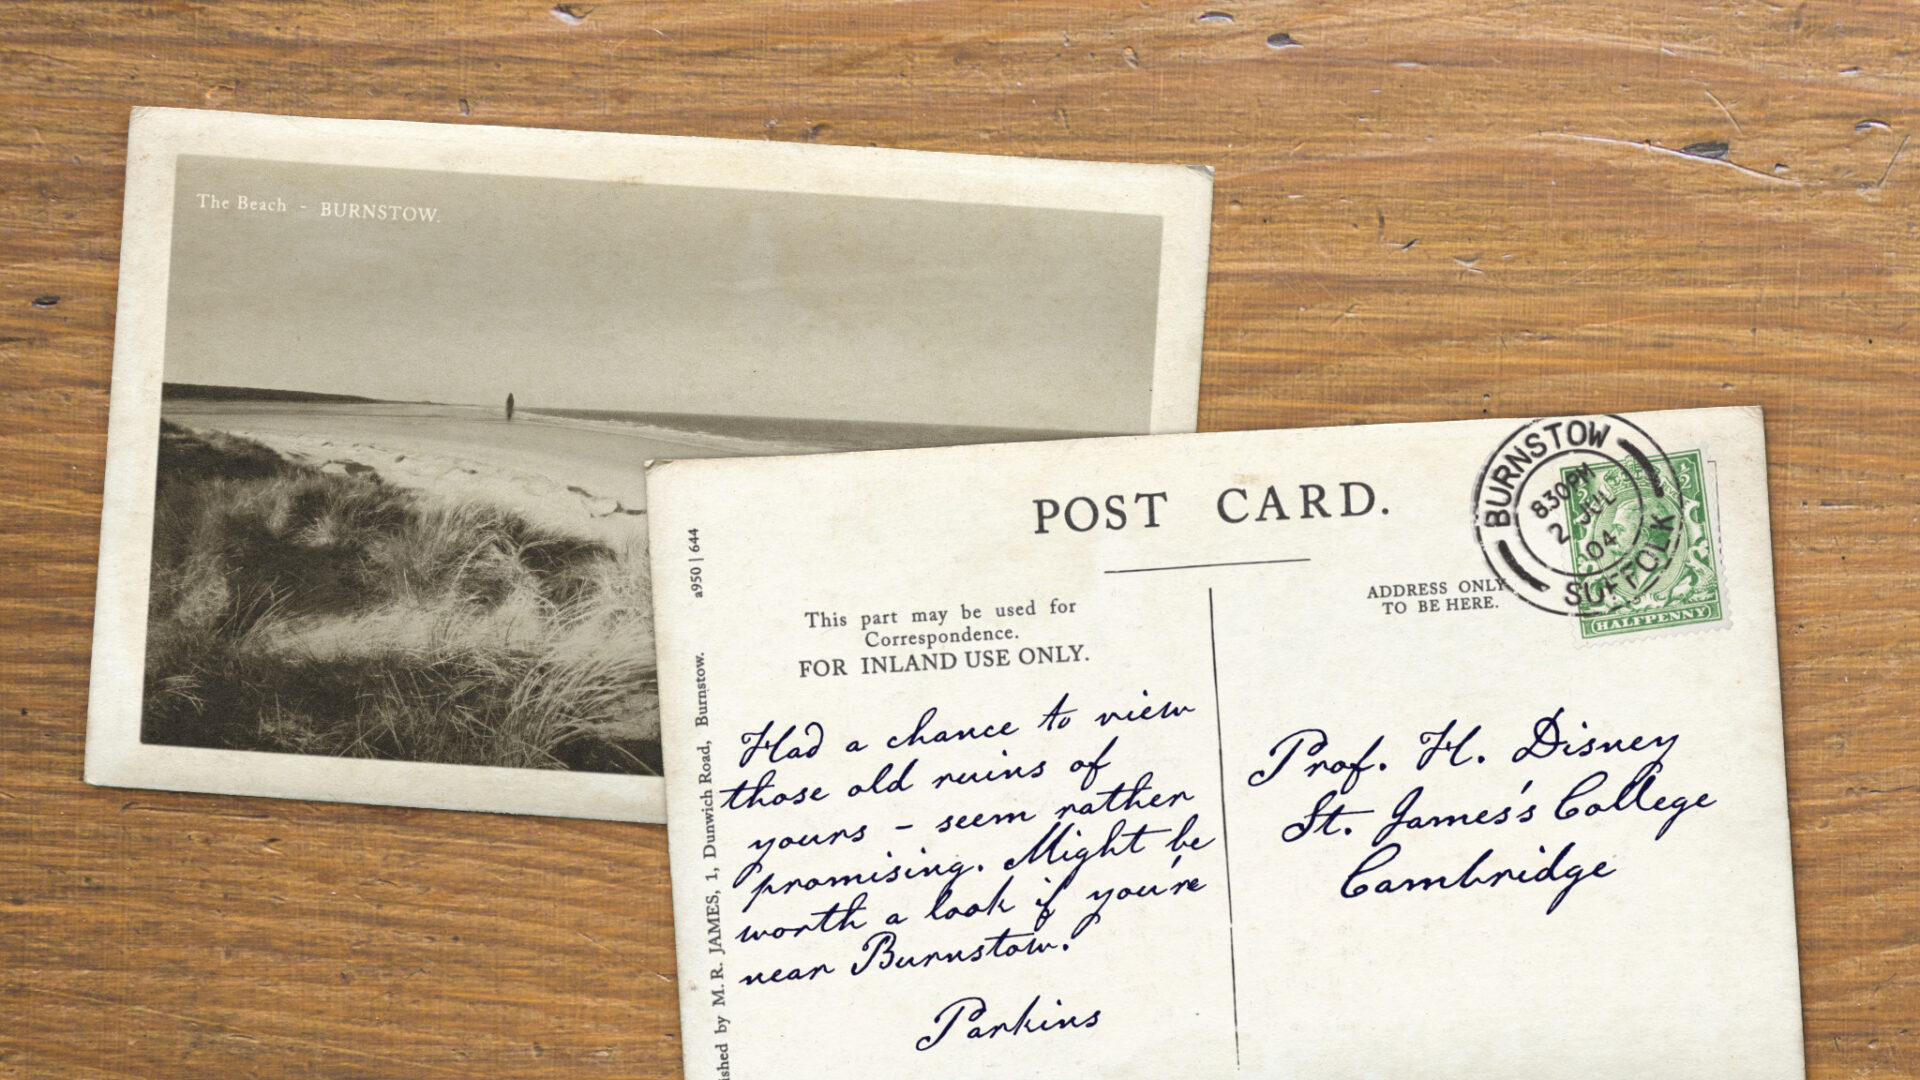 The Beach - BURNSTOW.
POST CARD.
This part may be used for
Correspondence.
FOR INLAND USE ONLY.
ADDRESS ONLY
TO BE HERE.
BURNSTOW
830PM
2 JUL
04
SUFFOLK
HALFPENNY
a950 | 644
ished by M. R. JAMES, 1, Dunwich Road, Burnstow.
Had a chance to view
those old ruins of
yours - seem rather
promising. Might be
worth a look if you're
near Burnstow.
Parkins
Prof. H. Disney
St. James's College
Cambridge